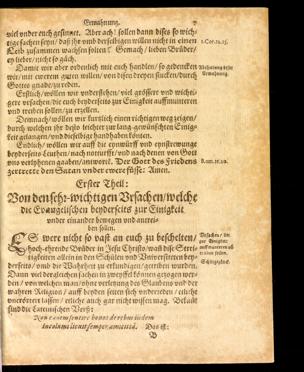 Ermahnung.
viel vnder euch gesinnet. Aber ach! sollen dann dises so wich-
tige sachen seyn/ daß ihr vnd derselbigen willen nicht in einen
Leib zusammen wachsen solten? Gemach/ lieben Brüder/
ey lieber/ nicht so gäch.
Damit wir aber ordenlich mit euch handlen/ so gedencken
wir/ mit ewerem guten willen/ von disen dreyen stucken/ durch
Gottes gnade/ zu reden.
Erstlich/ wöllen wir vndersehen/ viel grösser vnd wich-
tigere vrsachen/ die euch beyderseits zur Einigkeit auffmunteren
vnd treiben sollen/ zu erzellen.
Demnach/ wöllen wir kurtzlich einen richtigen weg zeigen/
durch welchen ihr desto leichter zur lang-gewünschten Einig-
keit gelangen/ vnd dieselbige handhaben können.
Endlich/ wöllen wir auff die eynwürff vnd
beyderseits Leuthen/ nach notturfft/ vnd nach denen von Gott
vns verlyhenen gaaben/ antworten. Der Gott des Friedens
zertrette den Satan vnder ewere füsse: Amen.
Erster Theil:
Von den sehr-wichtigen Vrsachen/ welche
die Evangelischen beyderseits zur Einigkeit
vnder einander bewegen vnd antrei-
ben sollen.
ES were nicht so vast an euch zu beschelten/
hoch-ehrende Brüder in Jesu Christo/ wañ dise Strei-
tigkeiten allein in den Schulen vnd Vniversiteten bey-
derseits/ omb die Wahrheit zu erkundigen/ getriben wurden.
Dann viel dergleichen sachen in zweyffel können gezogen wer-
den/ von welchen man/ ohne verletzung des Glaubens vnd der
wahren Religion/ auff beyden seiten sich vnderreden/ etliche
vnerörtert lassen/ etliche auch gar nicht wissen mag. Bekañt
sind die Lateinischen Verß:
Non eadem sentire bonos de rebus iisdem
Incolumi licuit semper amicitiâ. Das ist:
B
1. Cor. 12. 25.
Abtheilung diser
Ermahnung.
Rom. 16. 20.
Vrsachen/ die
zur Einigkeit
auffmunteren vñ
treiben sollen.